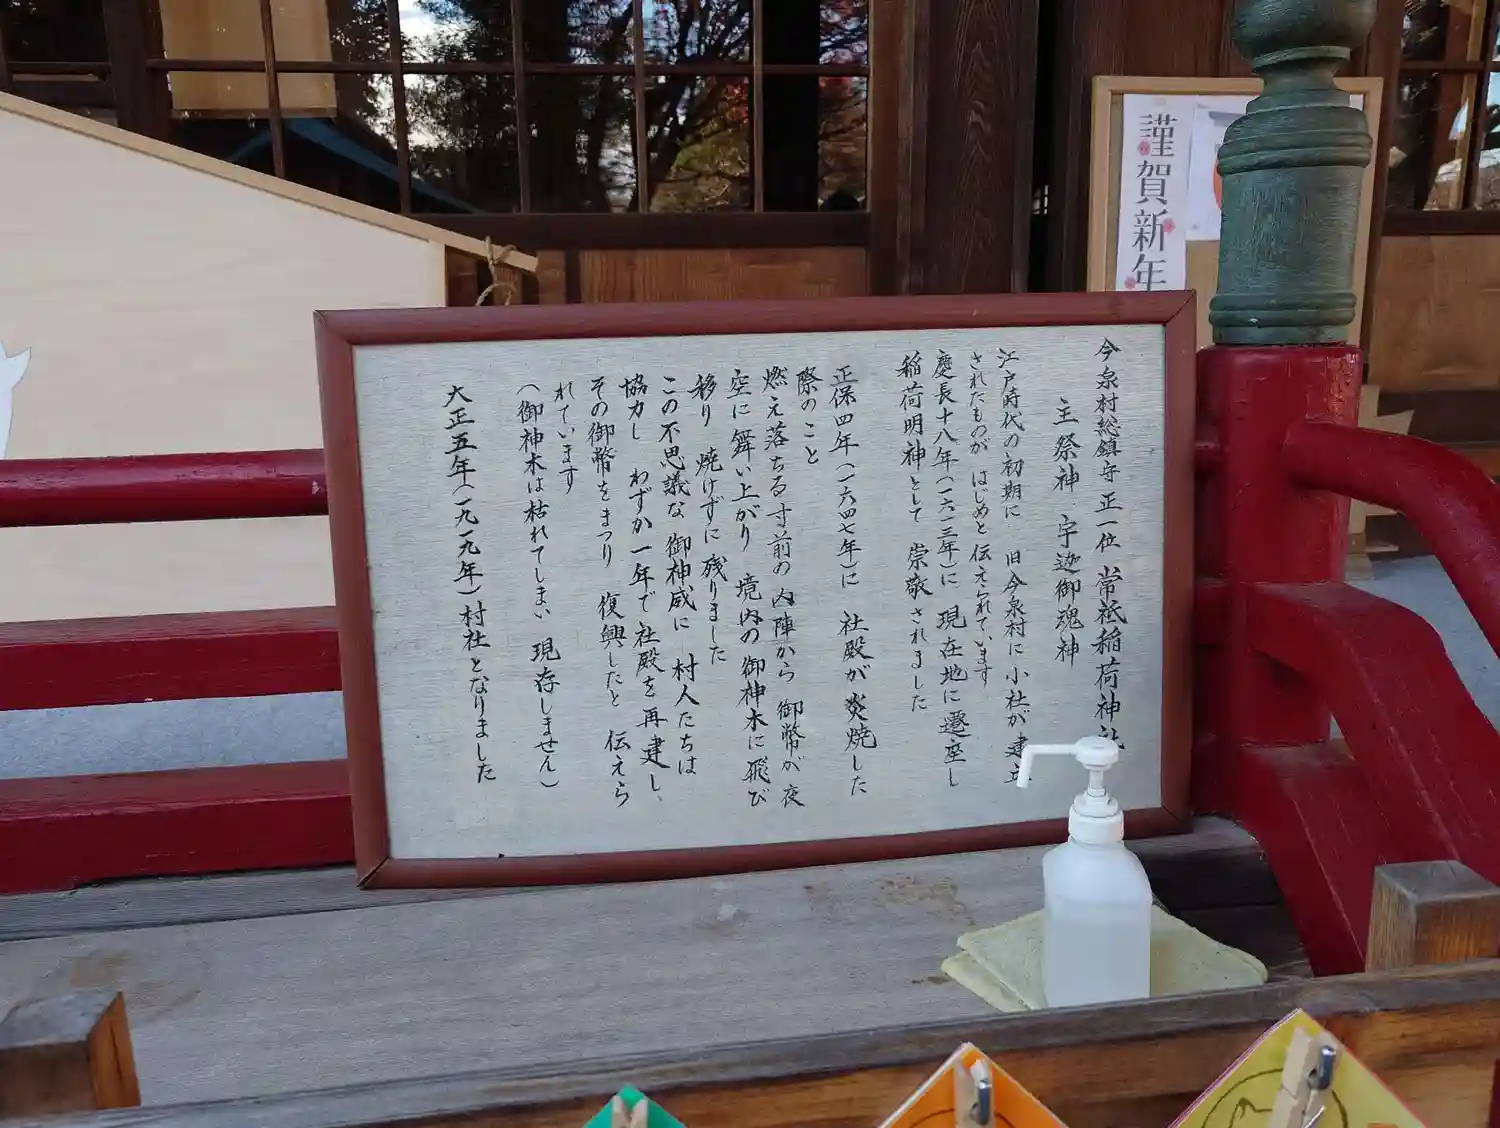 今泉村総鎮守 正一位 常祗稲荷神社
主祭神 宇迦御魂神
江戸時代の初期に 旧今泉村に小社が建立
されたものが はじめと伝えられています
慶長十八年(一六一三年)に 現在地に遷座し
稲荷明神として 崇敬されました
正保四年(一六四七年)に 社殿が炎焼した
際のこと
燃え落ちる寸前の内陣から 御幣が夜
空に舞い上がり 境内の御神木に飛び
移り 焼けずに残りました
この不思議な御神威に 村人たちは
協力し わずか一年で社殿を再建し、
その御幣をまつり 復興したと 伝えら
れています
(御神木は枯れてしまい 現存しません)
大正五年(一九一九年)村社となりました
謹賀新年